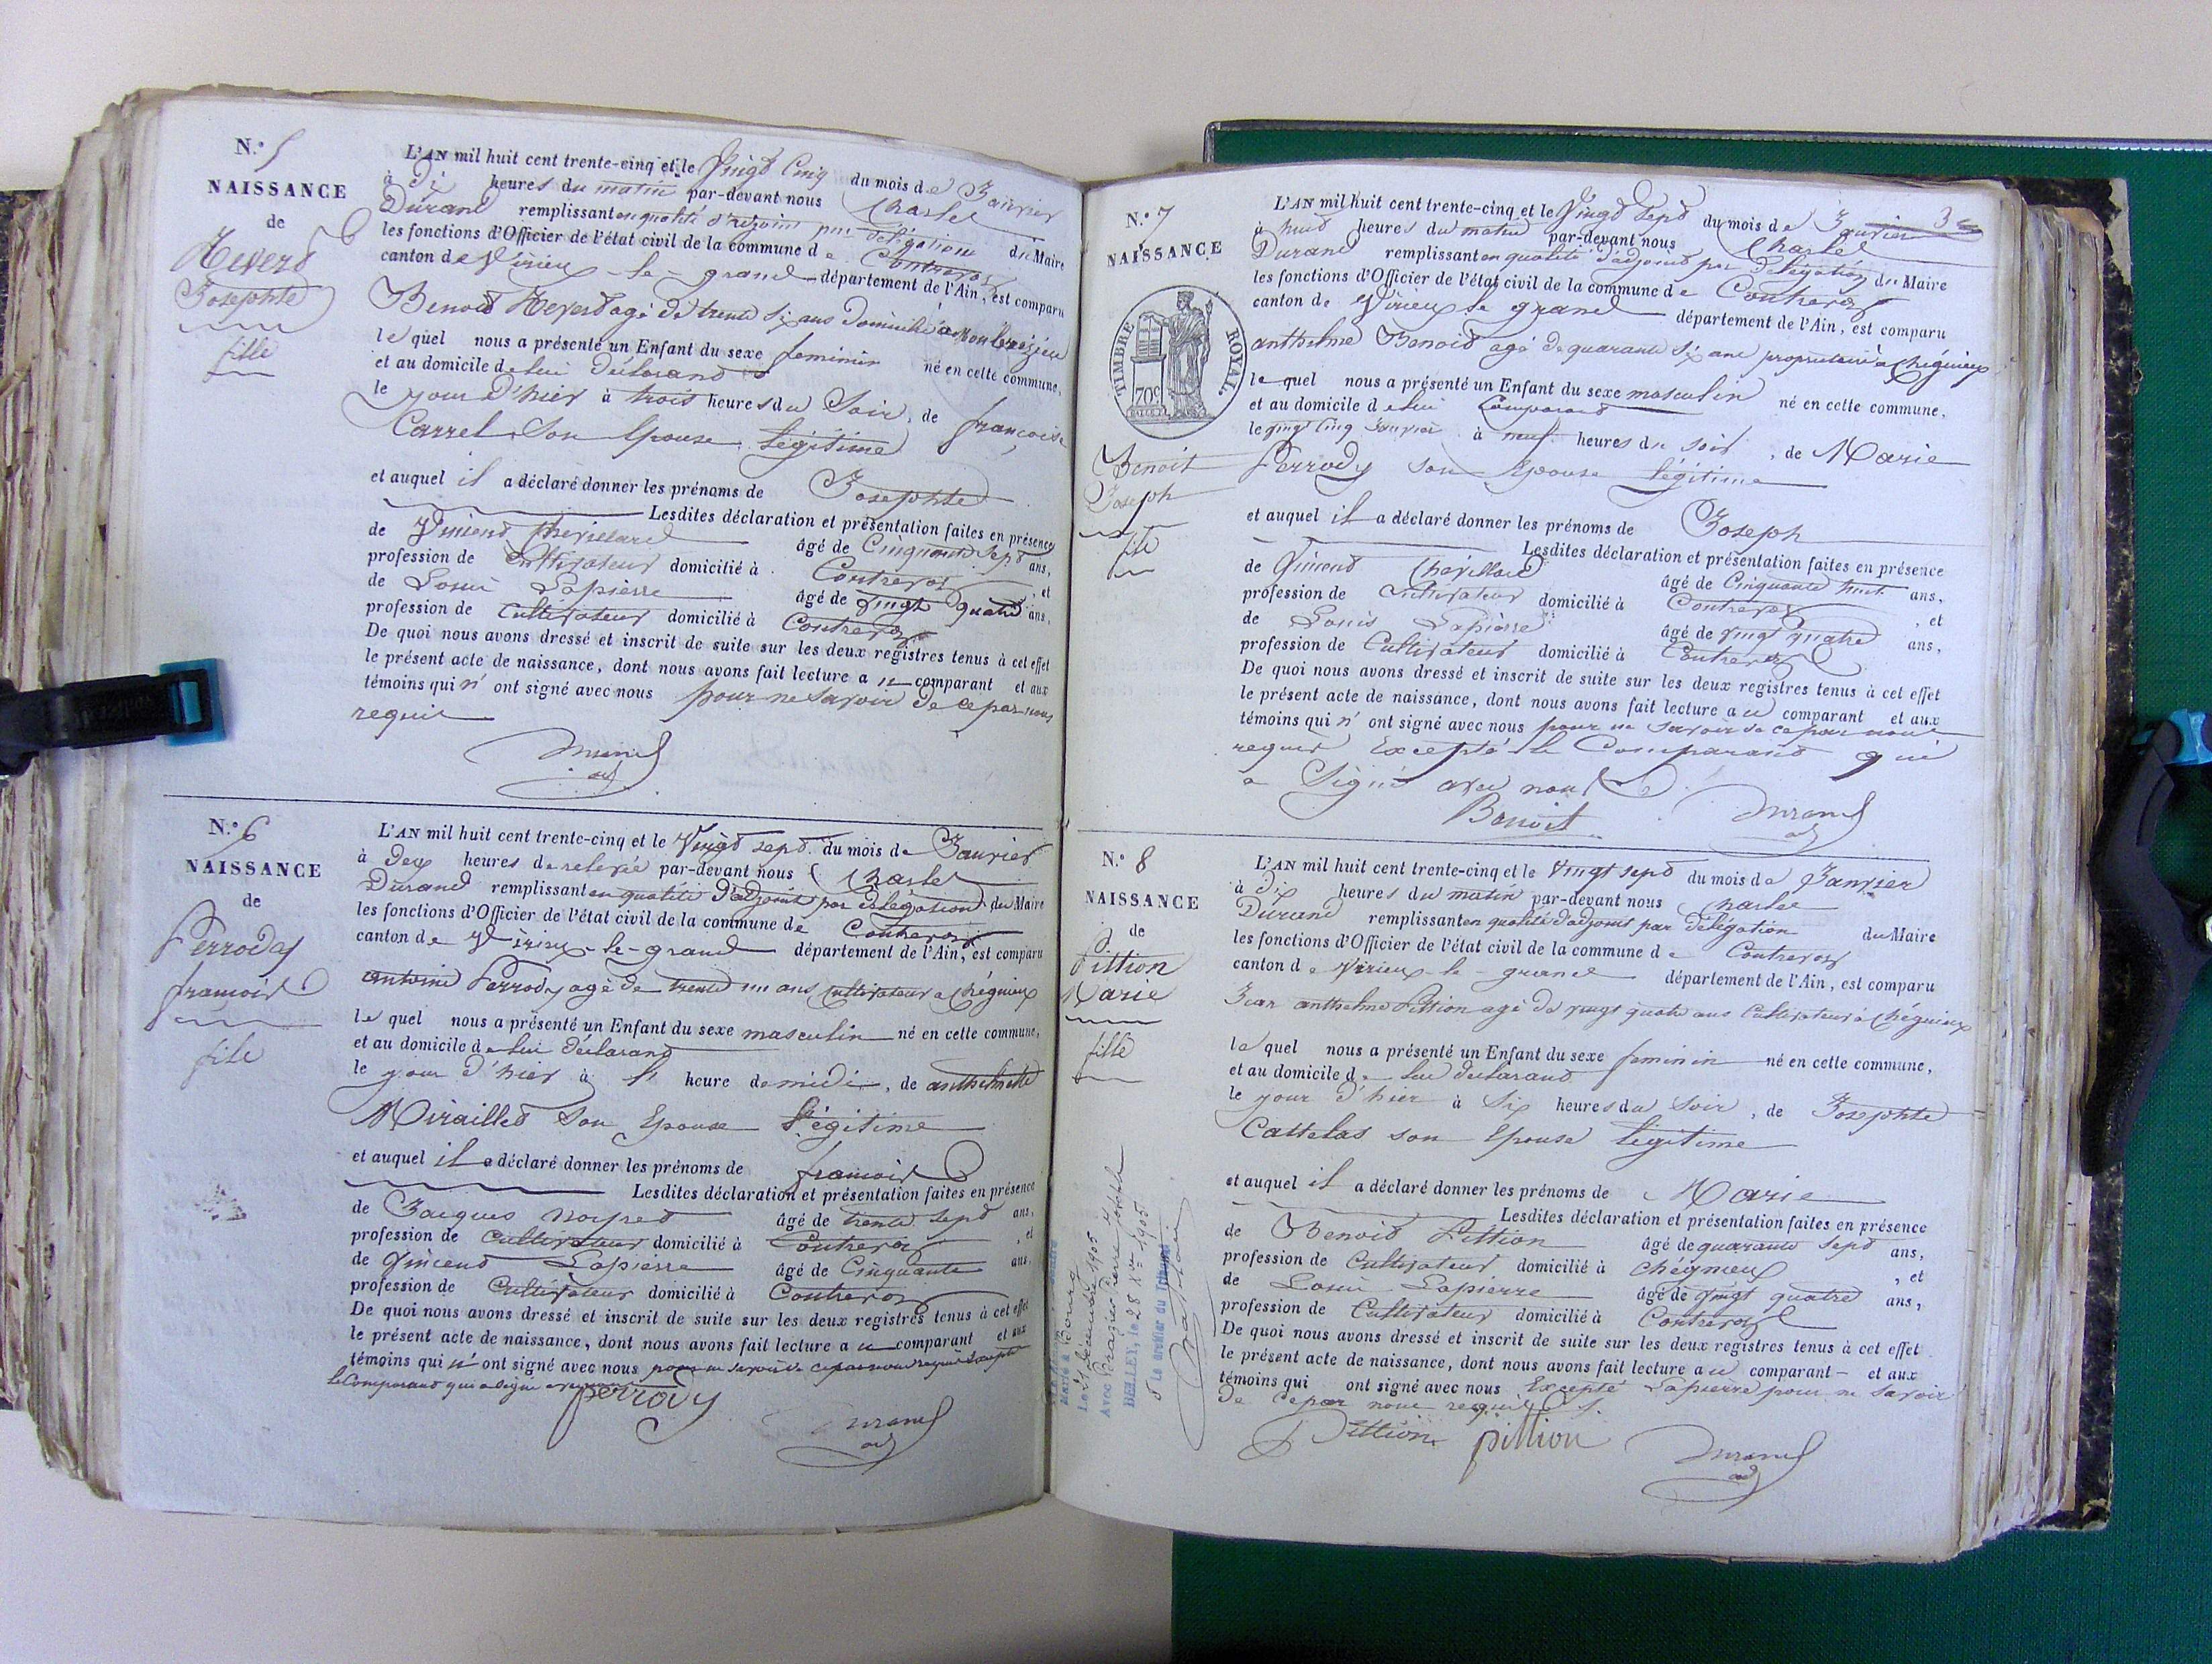 N.º 5
NAISSANCE
de
Hevers
Josephte
fille
L'AN mil huit cent trente-cinq et le Vingt Cinq du mois de Janvier
à Dix heures du matin par-devant nous Charles
Durand remplissant en qualité d'adjoint par délégation du Maire
les fonctions d'Officier de l'état civil de la commune de Contrevoz
canton de Virieux-le-grand département de l'Ain, est comparu
Benoit agé de trente six ans domicilié à
le quel nous a présenté un Enfant du sexe feminin né en cette commune,
et au domicile de lui déclarant
le jour d'hier à trois heures du Soir, de françoise
Carrel Son Epouse légitime
et auquel il a déclaré donner les prénoms de Josephte
Lesdites déclaration et présentation faites en présence
de Vincent Chevillard âgé de Cinquante Sept ans,
profession de Cultivateur domicilié à Contrevoz, et
de Louis Lapierre âgé de vingt quatre ans,
profession de Cultivateur domicilié à Contrevoz
De quoi nous avons dressé et inscrit de suite sur les deux registres tenus à cet effet
le présent acte de naissance, dont nous avons fait lecture au comparant et aux
témoins qui n' ont signé avec nous pour ne Savoir de ce par nous
requis
Durand
adj
N.º 6
NAISSANCE
de
Perrody
francois
fils
L'AN mil huit cent trente-cinq et le Vingt sept du mois de Janvier
à deux heures de relevée par-devant nous Charles
Durand remplissant en qualité d'adjoint par délégation du Maire
les fonctions d'Officier de l'état civil de la commune de Contrevoz
canton de Virieux-le-grand département de l'Ain, est comparu
antoine Perrody agé de trente un ans Cultivateur a Chégnieux
le quel nous a présenté un Enfant du sexe masculin né en cette commune,
et au domicile de lui déclarant
le jour d'hier à l' heure de midi, de anthelmette
Miraillet Son Epouse légitime
et auquel il a déclaré donner les prénoms de francois
Lesdites déclaration et présentation faites en présence
de Jacques âgé de trente Sept ans,
profession de Cultivateur domicilié à Contrevoz, et
de Vincent Lapierre âgé de Cinquante ans,
profession de Cultivateur domicilié à Contrevoz
De quoi nous avons dressé et inscrit de suite sur les deux registres tenus à cet effet
le présent acte de naissance, dont nous avons fait lecture au comparant et aux
témoins qui n' ont signé avec nous pour ne savoir de ce par nous requis Excepté
le Comparant qui a Signé
perrody
Durand
adj
3
N.º 7
NAISSANCE
TIMBRE ROYAL
70c
Benoit
Joseph
fils
L'AN mil huit cent trente-cinq et le Vingt Sept du mois de Janvier
à huit heures du matin par-devant nous Charles
Durand remplissant en qualité d'adjoint par délégation du Maire
les fonctions d'Officier de l'état civil de la commune de Contrevoz
canton de Virieux le grand département de l'Ain, est comparu
anthelme Benoit agé de quarante Six ans propriétaire a Chégnieux
le quel nous a présenté un Enfant du sexe masculin né en cette commune,
et au domicile de lui Comparant
le vingt Cinq Janvier à neuf heures du soir, de Marie
Perrody Son Epouse légitime
et auquel il a déclaré donner les prénoms de Joseph
Lesdites déclaration et présentation faites en présence
de Vincent Chevillard âgé de Cinquante huit ans,
profession de Cultivateur domicilié à Contrevoz, et
de Louis Lapierre âgé de vingt quatre ans,
profession de Cultivateur domicilié à Contrevoz
De quoi nous avons dressé et inscrit de suite sur les deux registres tenus à cet effet
le présent acte de naissance, dont nous avons fait lecture au comparant et aux
témoins qui n' ont signé avec nous pour ne Savoir de ce par nous
requis Excepté le Comparant qui
a Signé avec nous
Benoit
Durand
adj
N.º 8
NAISSANCE
de
Pittion
Marie
fille
L'AN mil huit cent trente-cinq et le Vingt sept du mois de Janvier
à Dix heures du matin par-devant nous Charles
Durand remplissant en qualité d'adjoint par délégation du Maire
les fonctions d'Officier de l'état civil de la commune de Contrevoz
canton de Virieux-le-grand département de l'Ain, est comparu
Jean anthelme Pittion agé de vingt quatre ans Cultivateur à Chégnieux
le quel nous a présenté un Enfant du sexe feminin né en cette commune,
et au domicile de lui déclarant
le jour d'hier à Six heures du Soir, de Josephte
Cattelas son Epouse légitime
et auquel il a déclaré donner les prénoms de Marie
Lesdites déclaration et présentation faites en présence
de Benoit Pittion âgé de quarante Sept ans,
profession de Cultivateur domicilié à Chégnieux, et
de Louis Lapierre âgé de vingt quatre ans,
profession de Cultivateur domicilié à Contrevoz
De quoi nous avons dressé et inscrit de suite sur les deux registres tenus à cet effet
le présent acte de naissance, dont nous avons fait lecture au comparant et aux
témoins qui ont signé avec nous Excepté Lapierre pour ne savoir
de ce par nous requis
Pittion pittion
Durand
adj
à Bourg
Le 21 Décembre 1905
Avec Brazier Pierre
BELLEY, le 28 Xbre 1905
Le Greffier du Tribunal